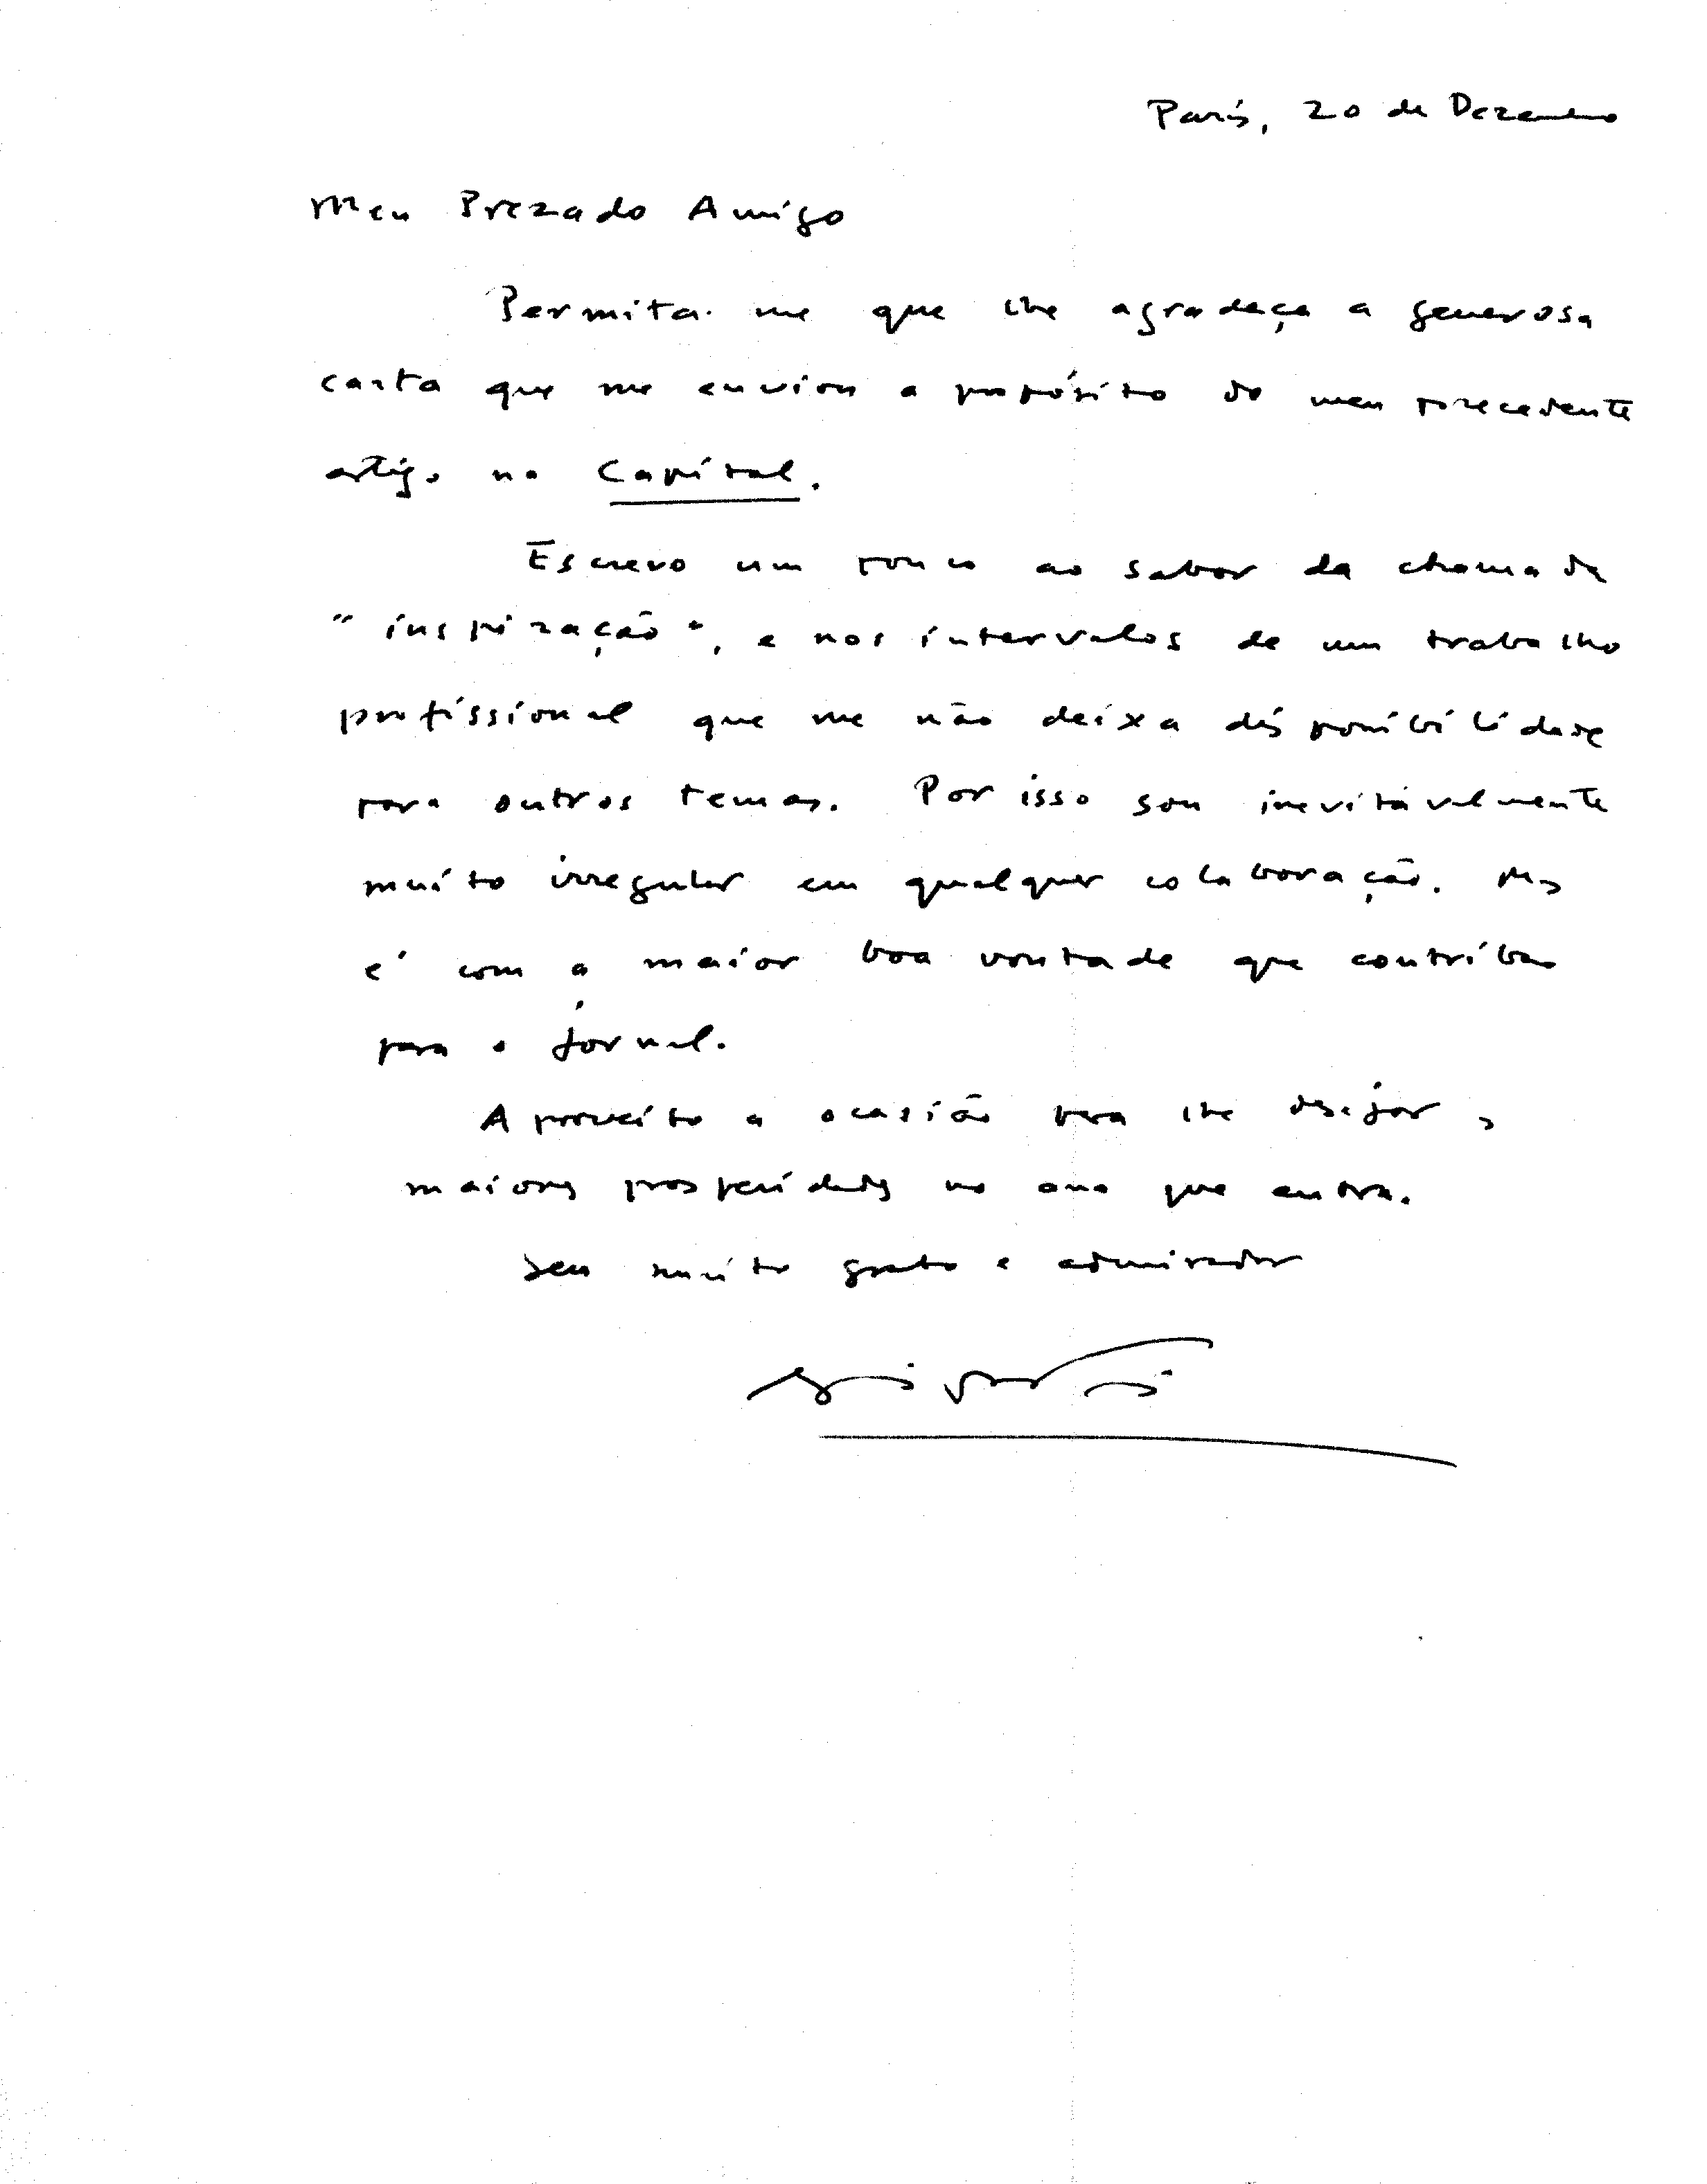 Paris, 20 de Dezembro
Meu Prezado Amigo
Permita-me que lhe agradeça a generosa
carta que me enviou a propósito do meu precedente
artigo na Capital.
Escrevo um pouco ao sabor da chamada
"inspiração", e nos intervalos de um trabalho
profissional que me não deixa disponibilidade
para outros temas. Por isso sou inevitávelmente
muito irregular em qualquer colaboração. Mas
é com a maior boa vontade que contribuo
para o jornal.
Aproveito a ocasião para lhe desejar as
maiores prosperidades no ano que entra.
Seu muito grato e admirador